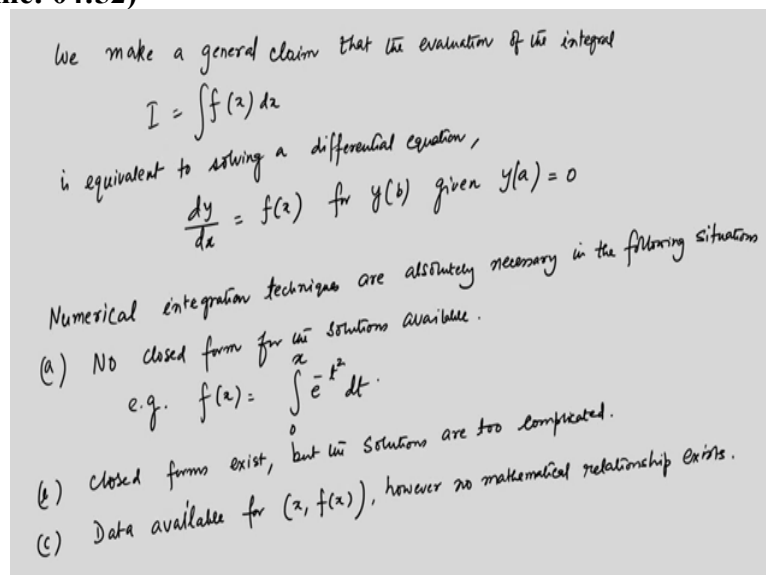 me: 04:52)
We make a general claim that the evaluation of the integral
I = ∫f(x) dx
is equivalent to solving a differential equation,
dy/dx = f(x) for y(b) given y(a) = 0
Numerical integration techniques are absolutely necessary in the following situations
(a) No closed form for the solutions available.
e.g. f(x) = ∫₀ˣ e^{-t²} dt.
(b) closed forms exist, but the solutions are too complicated.
(c) Data available for (x, f(x)), however no mathematical relationship exists.